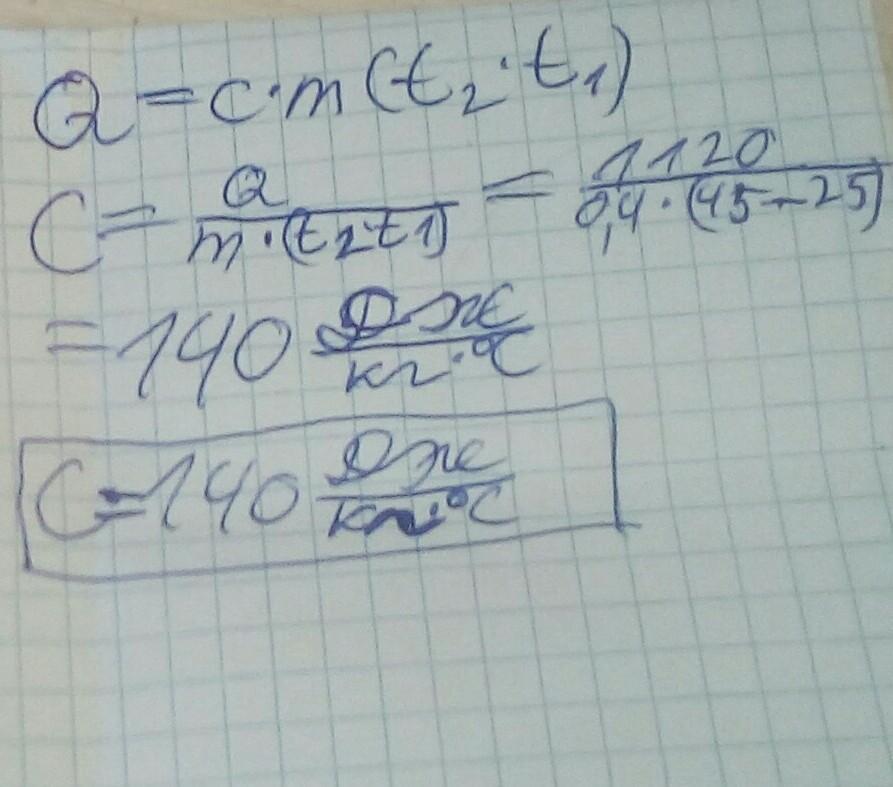 Q = c·m(t₂·t₁)
C = Q/m·(t₂·t₁) = 1120/0,4·(45-25)
= 140 Дж/кг·°C
C = 140 Дж/кг·°C